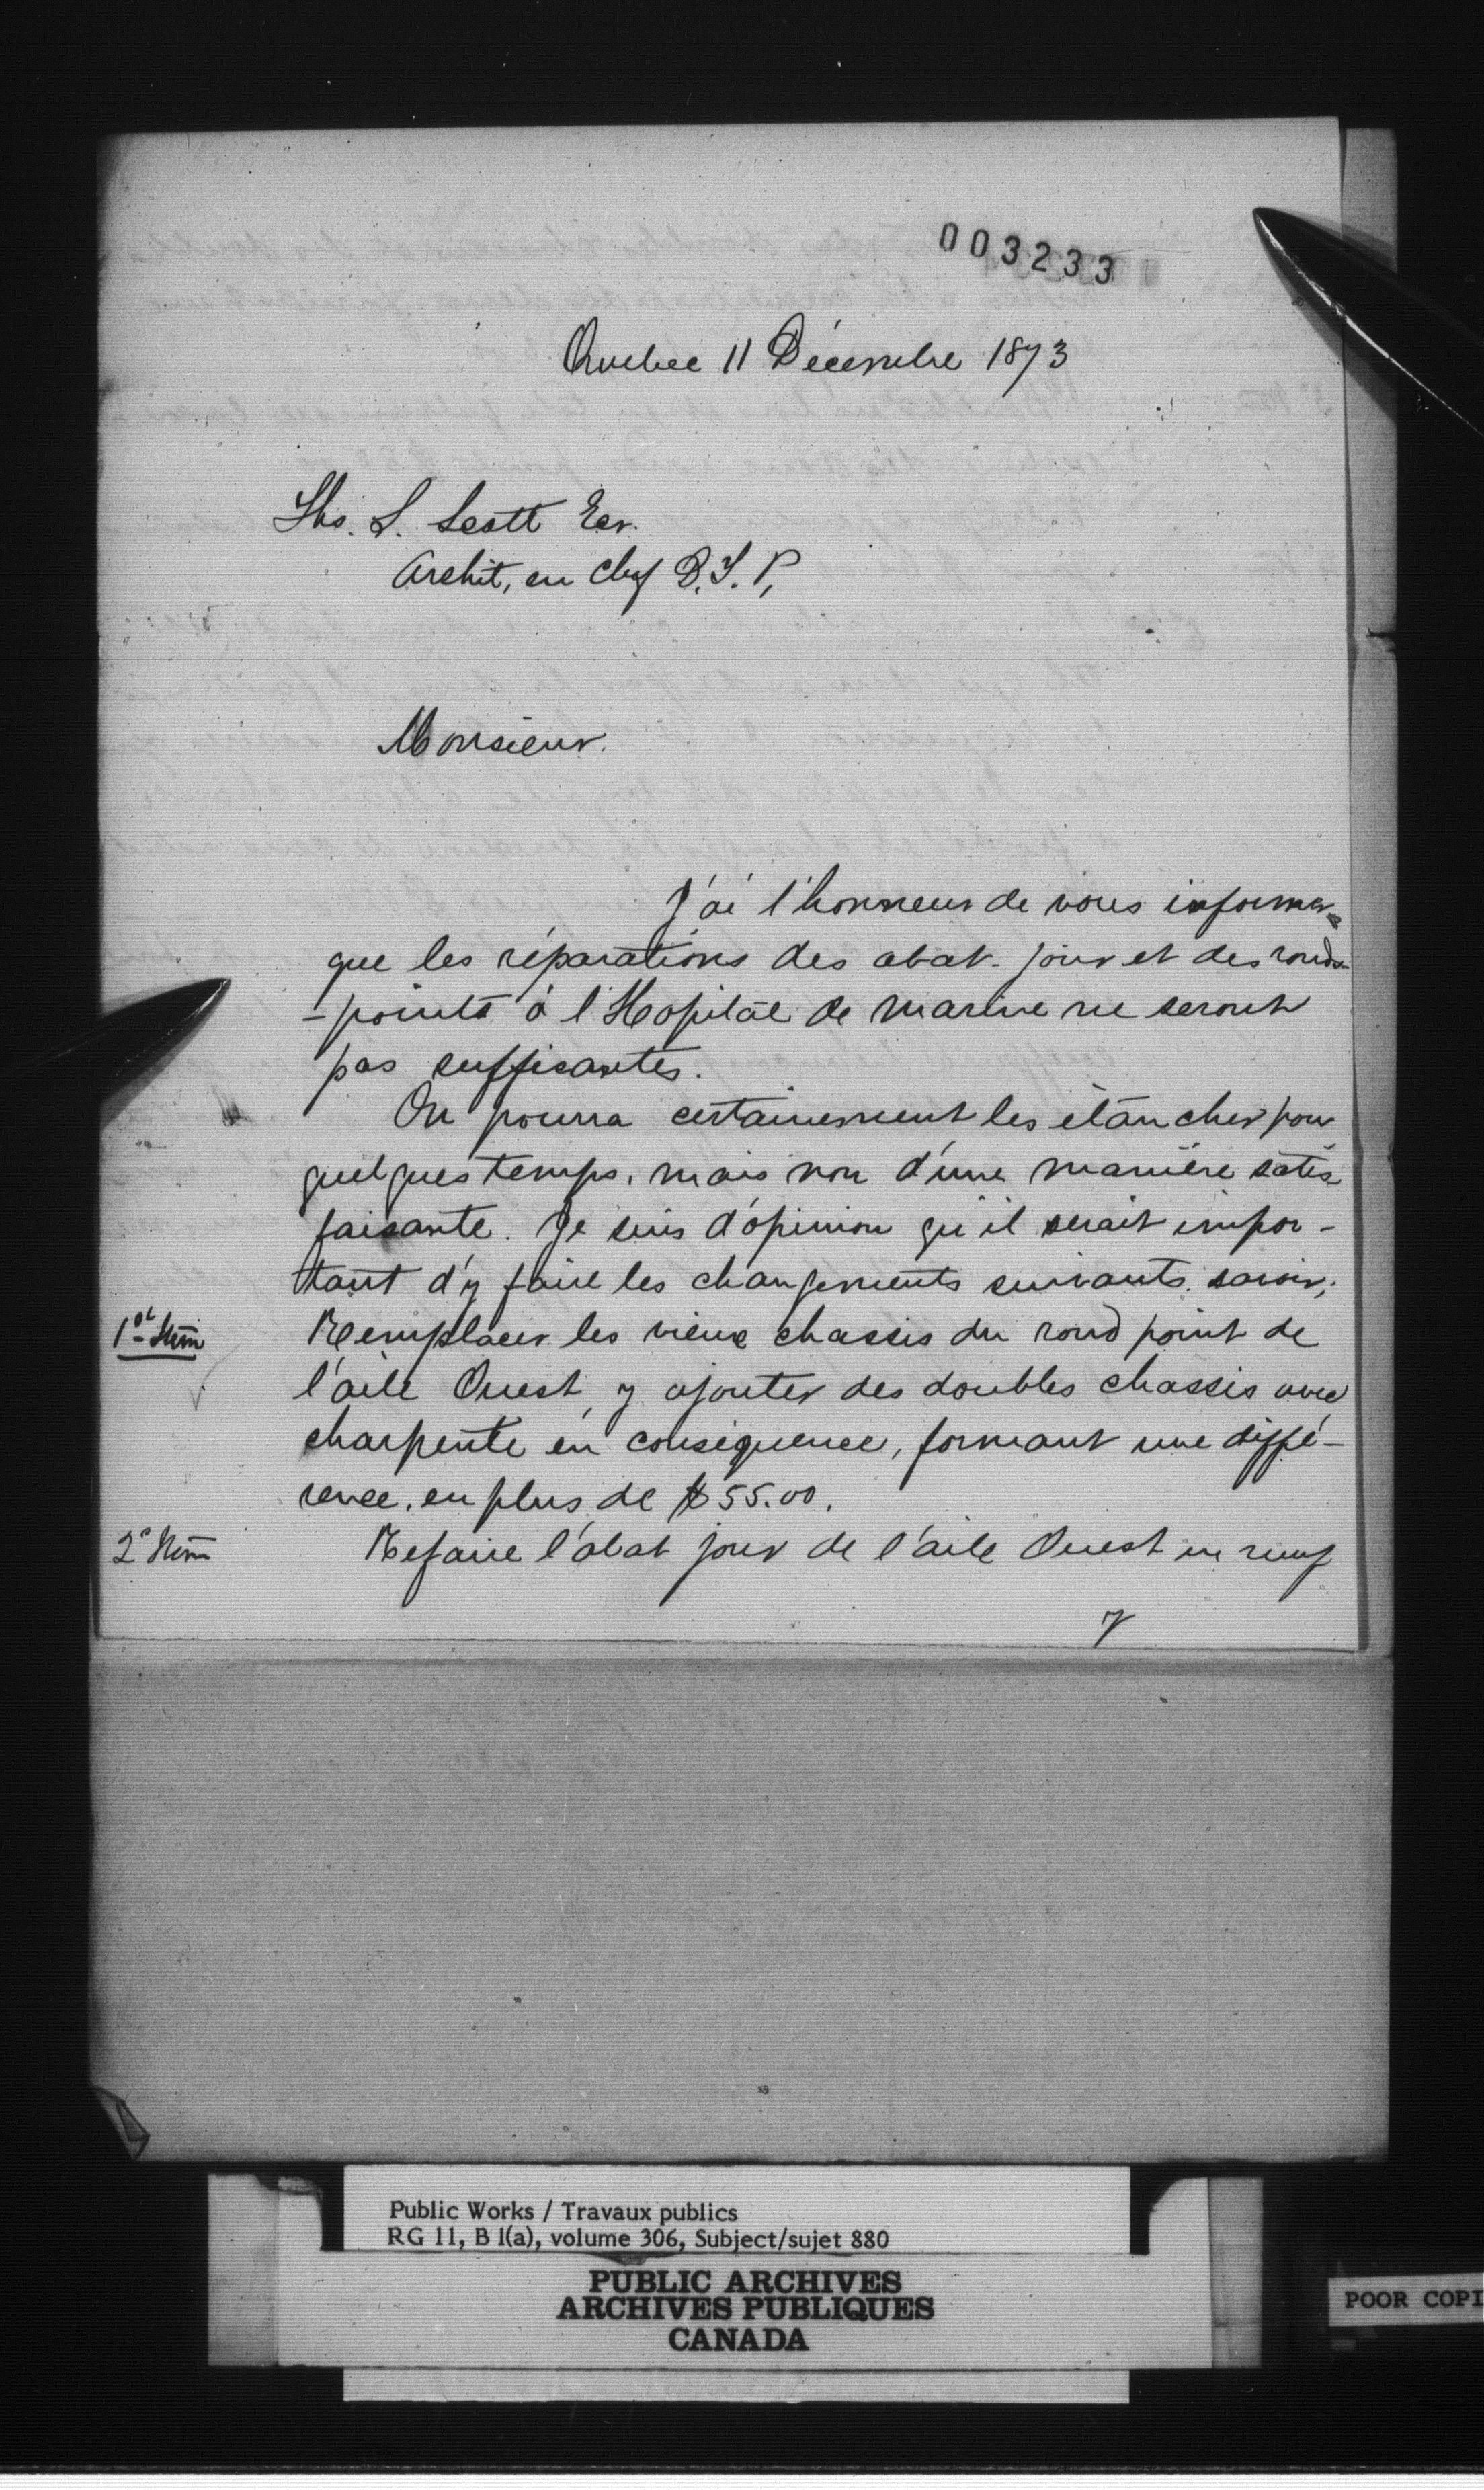 003233
Quebec 11 Décembre 1873
Ths. S. Scott Ecr.
Archit, en chef D.T.P,
Monsieur.
J'ai l'honneur de vous informer
que les réparations des abat-jour et des ronds-
-points à l'Hopital de marine ne seront
pas suffisantes.
On pourra certainement les étancher pour
quelques temps, mais non d'une manière satis-
faisante. Je suis d'opinion qu'il serait impor-
tant d'y faire les changements suivants. savoir;
1er Item Remplacer les vieux chassis du rond point de
l'aile Ouest, y ajouter des doubles chassis avec
charpente en conséquence, formant une diffé-
rence, en plus de $55.00.
2e Item Refaire l'abat jour de l'aile Ouest en neuf
Public Works / Travaux publics
RG 11, B 1(a), volume 306, Subject/sujet 880
PUBLIC ARCHIVES
ARCHIVES PUBLIQUES
CANADA
POOR COPI